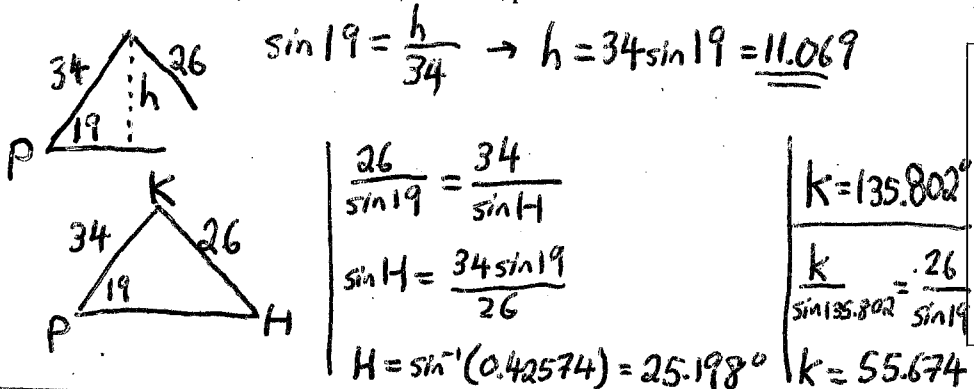 sin 19 = h/34 → h = 34 sin 19 = 11.069
34 26
h
19
P
K
34 26
19
P H
26/sin 19 = 34/sin H
sin H = 34 sin 19/26
H = sin⁻¹(0.42574) = 25.198°
K = 135.802°
k/sin 135.802 = 26/sin 19
k = 55.674